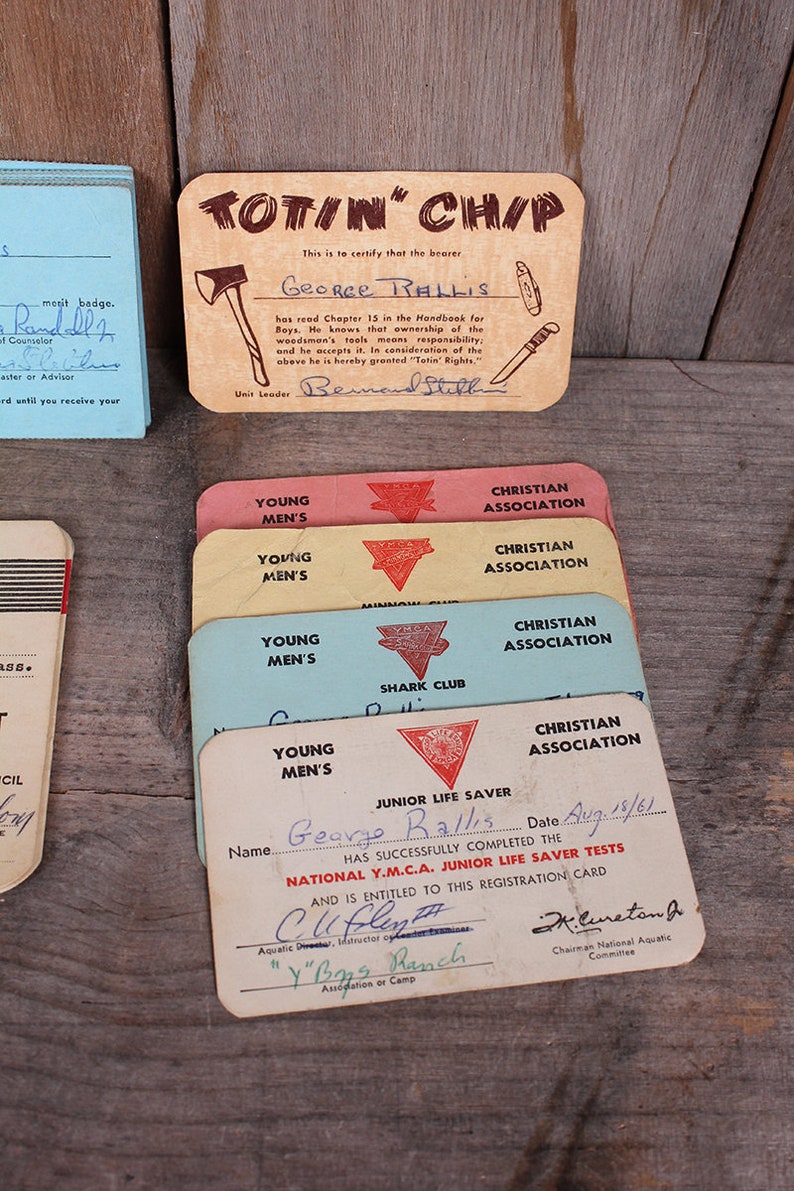 s
merit badge.
Randall Jr
of Counselor
aster or Advisor
ord until you receive your
TOTIN' CHIP
This is to certify that the bearer
GEORGE RALLIS
has read Chapter 15 in the Handbook for
Boys. He knows that ownership of the
woodsman's tools means responsibility;
and he accepts it. In consideration of the
above he is hereby granted "Totin' Rights."
Unit Leader Bernard
ass.
T
CIL
E
YOUNG MEN'S
YMCA
CHRISTIAN ASSOCIATION
YOUNG MEN'S
YMCA
MINNOW
CHRISTIAN ASSOCIATION
MINNOW CLUB
YOUNG MEN'S
YMCA
SHARK
CHRISTIAN ASSOCIATION
SHARK CLUB
George Rallis
YOUNG MEN'S
LIFE SAVER
CHRISTIAN ASSOCIATION
JUNIOR LIFE SAVER
Name George Rallis Date Aug. 18/61
HAS SUCCESSFULLY COMPLETED THE
NATIONAL Y.M.C.A. JUNIOR LIFE SAVER TESTS
AND IS ENTITLED TO THIS REGISTRATION CARD
C U Foley III
T.K. Cureton Jr
Aquatic Director, Instructor or Leader Examiner
Chairman National Aquatic
Committee
"Y" Boys Ranch
Association or Camp